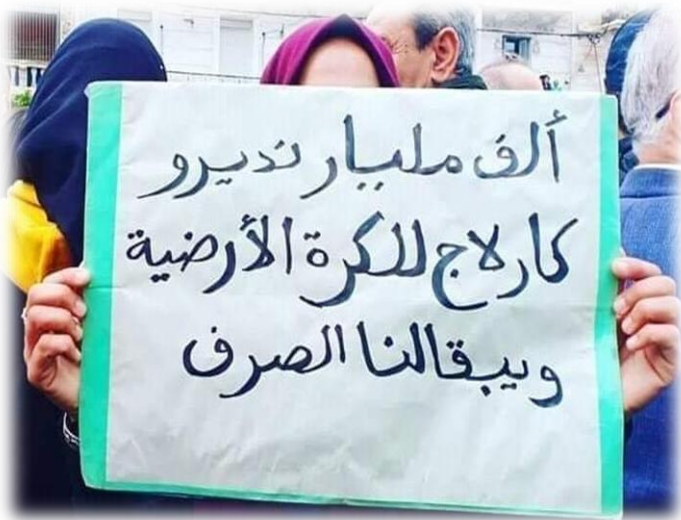 ألف مليار نديرو
كارلاج للكرة الأرضية
ويبقالنا الصرف